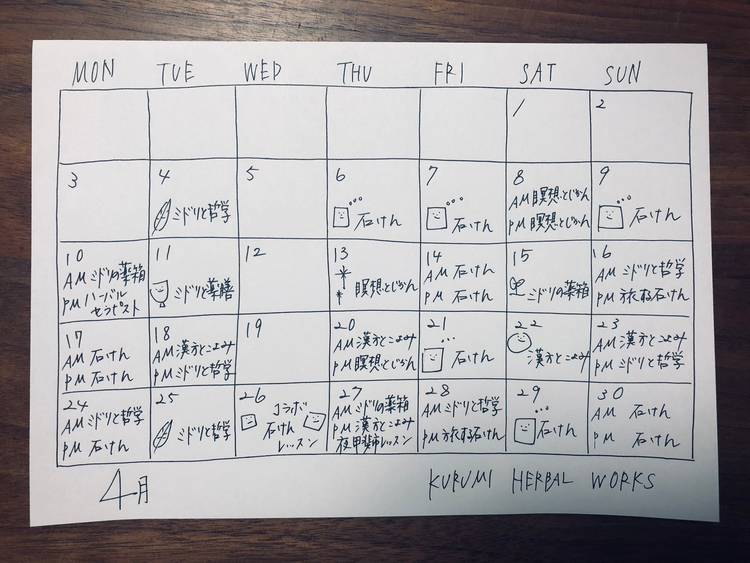 MON TUE WED THU FRI SAT SUN
1 2
3 4 5 6 7 8 9
ミドリと哲学
石けん
石けん
AM 瞑想とじかん
PM 瞑想とじかん
石けん
10 11 12 13 14 15 16
AM ミドリの薬箱
PM ハーバル
セラピスト
ミドリと薬膳
瞑想とじかん
AM 石けん
PM 石けん
ミドリの薬箱
AM ミドリと哲学
PM 旅する石けん
17 18 19 20 21 22 23
AM 石けん
PM 石けん
AM 漢方とこよみ
PM ミドリと哲学
AM 漢方とこよみ
PM 瞑想とじかん
石けん
漢方とこよみ
AM 漢方とこよみ
PM ミドリと哲学
24 25 26 27 28 29 30
AM ミドリと哲学
PM 石けん
ミドリと哲学
コラボ
石けん
レッスン
AM ミドリの薬箱
PM 漢方とこよみ
レッスン
AM ミドリと哲学
PM 旅する石けん
石けん
AM 石けん
PM 石けん
4月
KURUMI HERBAL WORKS